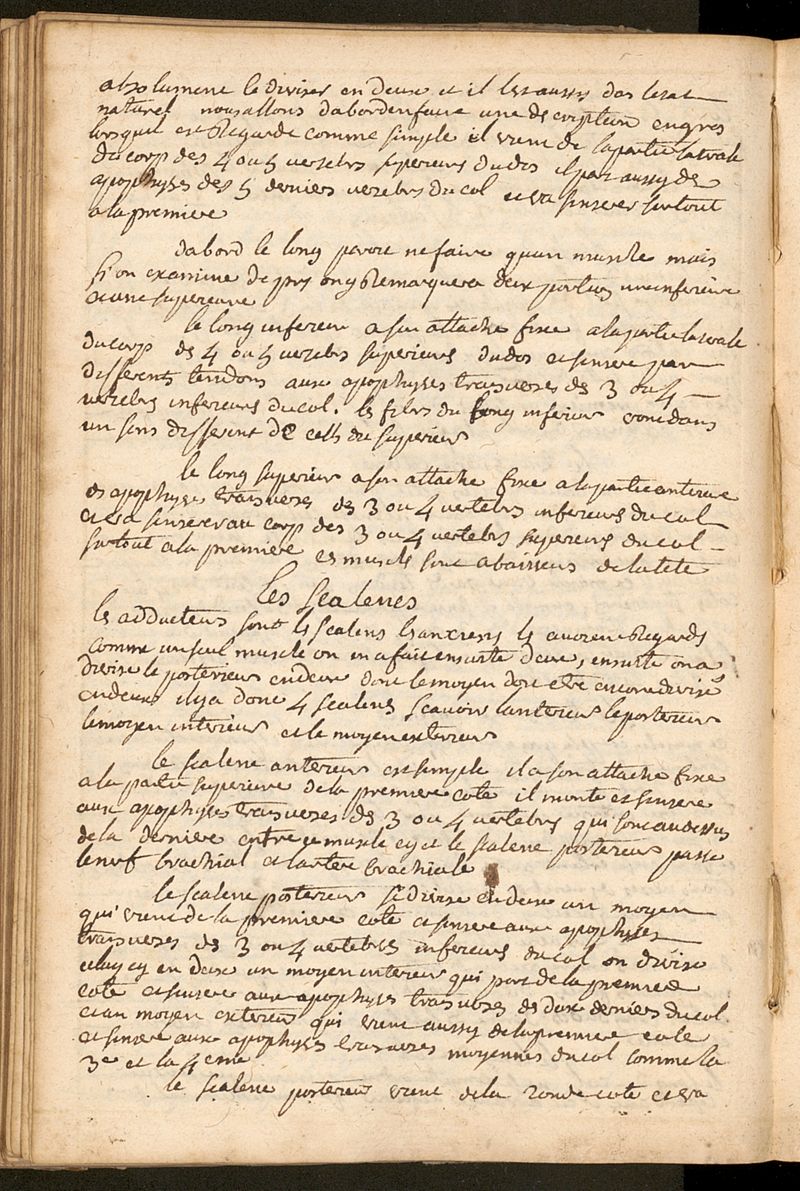 absolument le diviser en deux et il lest aussy dans letat
naturel nous allons dabord en faire une description en gros
lorsquil est Regardé comme simple il vient de la partie laterale
du corp des 4 ou 5 vertebrs superieurs du dos il part aussy des
apophyses des 5 derniers vertebrs du col et va sinserer surtout
a la premiere
dabord le long paroit ne faire quun muscle mais
si on examine de prs on y Remarquera deux portions une inferieure
et une superieure
le long inferieur a son attache fixe a la partie laterale
du corp des 4 ou 5 vertebrs superieurs du dos et sinsere par
differents tendons aux apophyses transverses des 3 ou 4
vertebrs inferieurs du col. les fibrs du long inferieur vont dans
un sens different de cells du superieur
le long superieur a son attache fixe a la partie anterieure
des apophyse transverses des 3 ou 4 vertebrs inferieurs du col
et va sinserer au corp des 3 ou 4 vertebrs superieurs du col
surtout a la premiere ces muscls sont abaisseurs de la tete
les scalenes
les adducteurs sont les scalens les anciens les avoient Regardés
comme un seul muscle on en a fait ensuite deux, ensuite on a
divisé le posterieur en deux dont le moyen doit etre encore divisé
en deux il y a donc 4 scalens scavoir lanterieur le posterieur
le moyen interieur et le moyen exterieur
le scalene anterieur est simple il a son attache fixe
a la partie superieure de la premiere cote il monte et sinsere
aux apophyses transverses des 3 ou 4 vertebrs qui sont au dessus
de la derniere entre ce muscle cy et le scalene posterieur passe
le nerf brachial et lartere brachiale
le scalene posterieur se divise en deux un moyen
qui vient de la premiere cote et sinsere aux apophyses
transverses des 3 ou 4 vertebres inferieurs du col on divise
celuy cy en deux un moyen interieur qui part de la premiere
cote et sinsere aux apophyses transverses des deux derniers du col
et un moyen exterieur qui vient aussy de la premiere cote
et sinsere aux apophyses transverses moyennes du col comme la
3e et la 4eme
le scalene posterieur vient de la 2onde cote et va